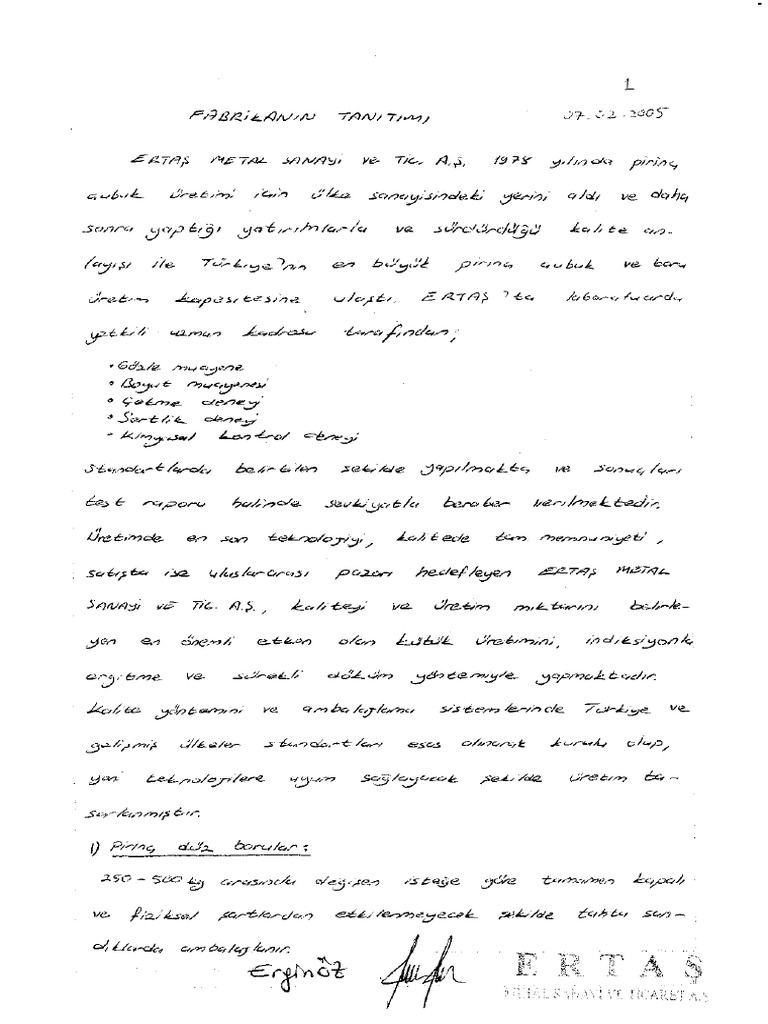 1
FABRİKANIN TANITIMI 07.02.2005
ERTAŞ METAL SANAYİ VE TİC. A.Ş. 1978 yılında pirinç
çubuk üretimi için ülke sanayisindeki yerini aldı ve daha
sonra yaptığı yatırımlarla ve sürdürdüğü kalite an-
layışı ile Türkiye'nin en büyük pirinç çubuk ve boru
üretim kapasitesine ulaştı. ERTAŞ'ta laboratuarda
yetkili uzman kadrosu tarafından;
• Gözle muayene
• Boyut muayenesi
• Çekme deneyi
• Sertlik deneyi
• Kimyasal kontrol deneyi
standartlarda belirtilen şekilde yapılmakta ve sonuçları
test raporu halinde sevkiyatla beraber verilmektedir.
Üretimde en son teknolojiyi, kalitede tam memnuniyeti,
satışta ise uluslararası pazarı hedefleyen ERTAŞ METAL
SANAYİ VE TİC. A.Ş., kaliteyi ve üretim miktarını belirle-
yen en önemli etken olan kütük üretimini, indiksiyonla
ergitme ve sürekli döküm yöntemiyle yapmaktadır.
Kalite yöntemini ve ambalajlama sistemlerinde Türkiye ve
gelişmiş ülkeler standartları esas alınarak kurulu olup,
yeni teknolojilere uyum sağlayacak şekilde üretim ta-
sarlanmıştır.
1) Pirinç düz borular:
250-500 kg arasında değişen isteğe göre tamamen kapalı
ve fiziksel şartlardan etkilenmeyecek şekilde tahta san-
dıklarda ambalajlanır.
Erginöz
ERTAŞ
METAL SANAYİ VE TİCARET A.Ş.